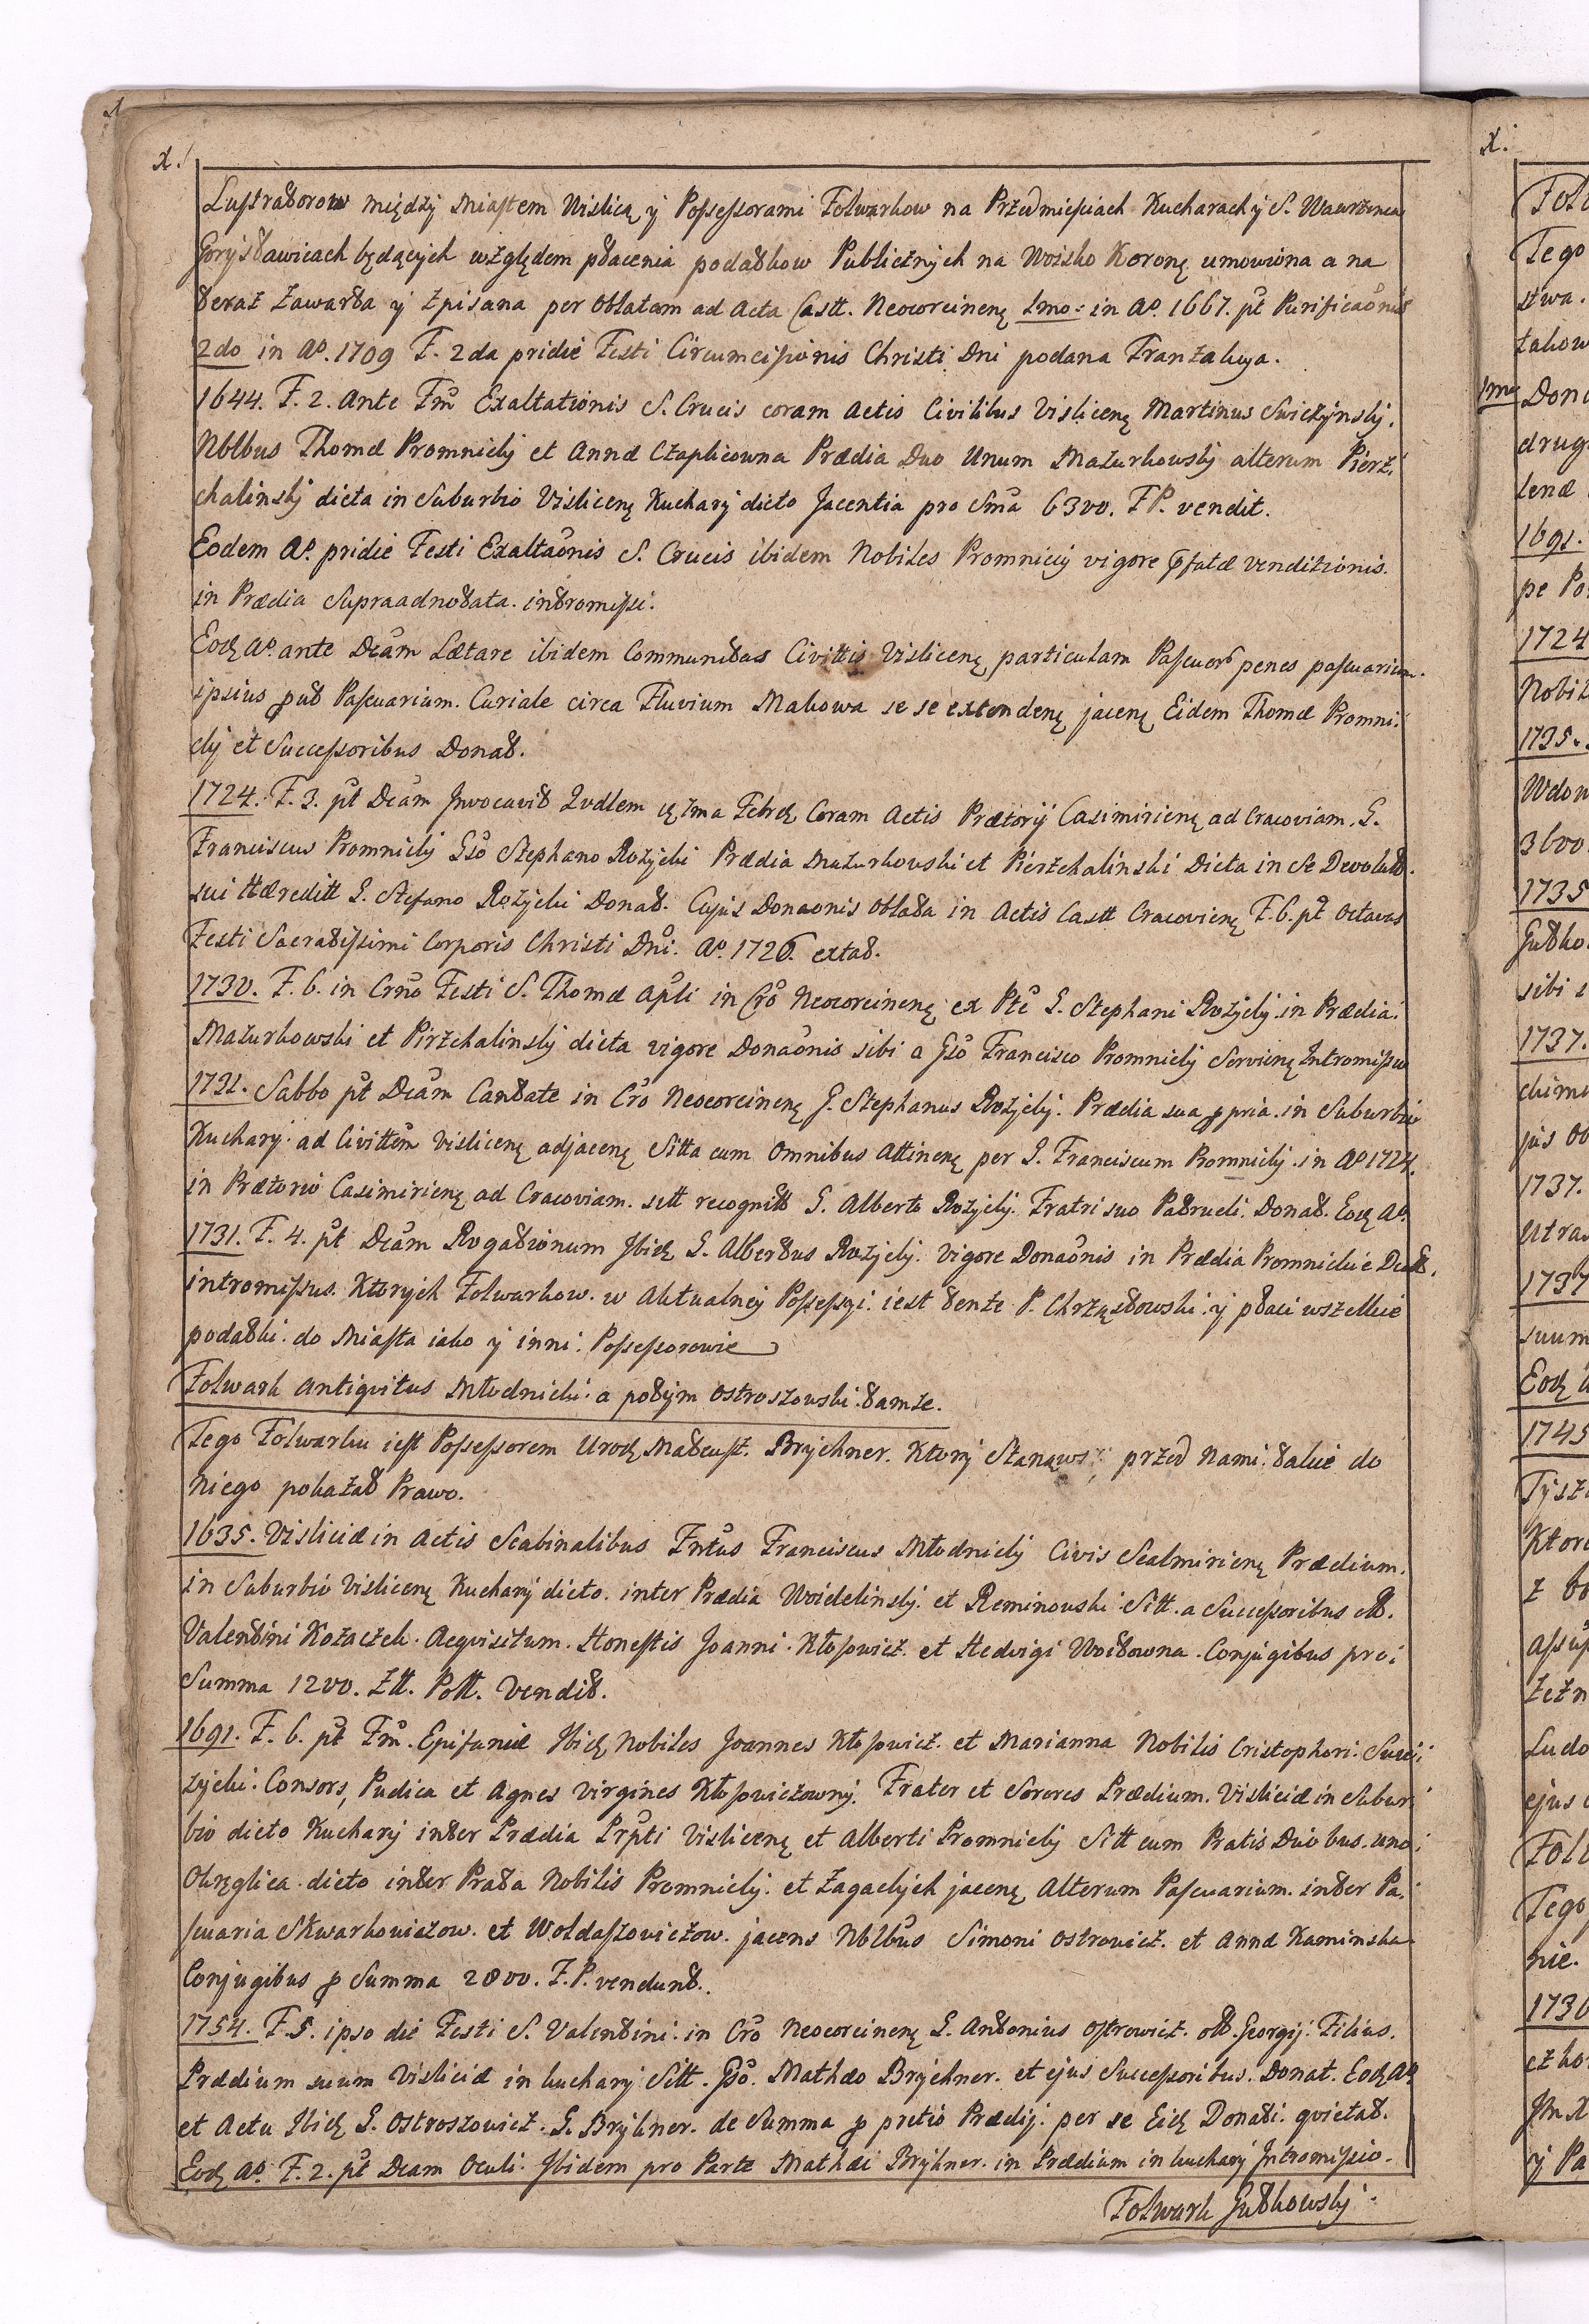 x.
Lustratorow między Miastem Wislicą y Possessorami Folwarkow na Przedmiesciach Kucharach y S. Wawrzenca
Gorysławicach będących względem płacenia podatkow Publicznych na Woisko Koronę umowiona a na
teraz Zawarta y Zpisana per Oblatam ad Acta Castt. Neocorcinenę 1mo: in Aº. 1667. pt Purificaõnis
2do in Aº. 1709 F. 2da pridie Festi Circumcisionis Christi Dni podana Tranzakcya.
1644. F. 2. Ante Fm Exaltationis S. Crucis coram Actis Civilibus Vislicenę Martinus Swiczynsky.
Nblbus Thomæ Promnicky et Annæ Czaplicowna Prædia Duo Unum Mazurkowsky alterum Pierz,
chalinsky dicta in Suburbio Vislicenę Kuchary dicto Jacentia pro Sma 6300. FP. vendit.
Eodem Aº. pridie Festi Exaltaõnis S. Crucis ibidem Nobiles Promniccy vigore pfatæ venditionis.
in Prædia Supraadnotata. intromissi.
Eodę Aº. ante Dcam Lætare ibidem Communitas Civittis Vislicenę particulam Pascuorũ penes pascuarium.
ipsius put Pascuarium. Curiale circa Fluvium Makowa se se extendenę jacenę Eidem Thomæ Promni:
cky et Successoribus Donat.
1724. F. 3. pt Dcam Invocavit Qvdlem ę 7ma Febrę Coram Actis Prætorij Casimirienę ad Cracoviam. G.
Franciscus Promnicky Gso Stephano Rozycki Prædia Mazurkowski et Pierzchalinski Dicta in Se Devolut.
sui Hæreditt G. Stefano Rozycki Donat. Cujus Donaonis Oblata in Actis Castt Cracovienę F. 6. pt Octavas
Festi Sacratissimi Corporis Christi Dni. Aº. 1726. extat.
1730. F. 6. in Crno Festi S. Thomæ Apli in Cro Neocorcinenę ex Pte G. Stephani Rozycky. in Prædia.
Mazurkowski et Pirzchalinsky dicta vigore Donaõnis sibi a Gso Francisco Promnicky Servienę Intromissio
1731. Sabbo pt Dcam Cantate in Cro Neocorcinenę G. Stephanus Rozycky. Prædia sua ppria. in Suburbio
Kuchary. ad Civittem Vislicenę adjacenę Sitta cum Omnibus Attinenę per G. Franciscum Promnicky. in Aº 1724.
in Prætorio Casimirienę ad Cracoviam. sitt recognitt G. Alberto Rozycky. Fratri suo Patrueli. Donat. Eodę Aº.
1731. F. 4. pt Dcam Rogationum Ibidę G. Albertus Rozycky. Vigore Donaõnis in Prædia Promnickie Dictt.
intromissus. Ktorych Folwarkow. w Aktualney Possessyi. iest tenże P. Chrząstowski. y płaci wszelkie
podatki. do Miasta iako y inni. Possessorowie
Folwark Antiqvitus Młodnicki. a potym Ostroszowski. tamże.
Tego Folwarku iest Possessorem Urodę Mateusz. Brychner. Ktory Stanąwszy przed Nami. takie do
Niego pokazał Prawo.
1635. Visliciæ in Actis Scabinalibus Fntus Franciscus Młodnicky Civis Scalmirienę Prædium.
in Suburbio Vislicenę Kuchary dicto. inter Prædia Woidelinsky. et Reminowski. Sitt. a Successoribus ott.
Valentini Kozaczek. Aeqvisitum. Honestis Joanni. Kłosowicz. et Hedvigi Woitowna. Conjugibus pro.
Summa 1200. Ztt. Pott. Vendit.
1691. F. 6. pt Fm. Epifaniæ Ibidę Nobiles Joannes Kłosowicz. et Marianna Nobilis Cristophori.
zycki. Consors, Pudica et Agnes virgines Kłosowiczowny. Frater et Sorores Prædium. Visliciæ in Subur
bio dicto Kuchary inter Prædia Prpti Vislicenę et Alberti Promnicky Sitt cum Pratis Duobus. uno
Okręglica. dicto inter Prata Nobilis Promnicky. et Zagackych jacenę Alterum Pascuarium. inter Pa,
scuaria Skwarkowiczow. et Woldaszowiczow. jacens Nblbus Simoni Ostrowicz. et Annæ Kaminska
Conjugibus p Summa 2800. F. P. vendunt.
1754. F. 5. ipso die Festi S. Valentini. in Cro Neocorcinenę G. Antonius Ostrowicz. ott. Georgij. Filius.
Prædium suum Visliciæ in kuchary Sitt. Gso. Mathæo Brychner. et ejus Successoribus. Donat. Eodę Aº
et Actu Ibidę G. Ostroszowicz. G. Brykner. de Summa p pretio Prædij. per se Eidę Donati. qvietat.
Eodę Aº. F. 2. pt Dcam Oculi. Ibidem pro Parte Mathæi Brykner. in Prædium in kuchary Intromissio.
Folwark Gutkowsky.